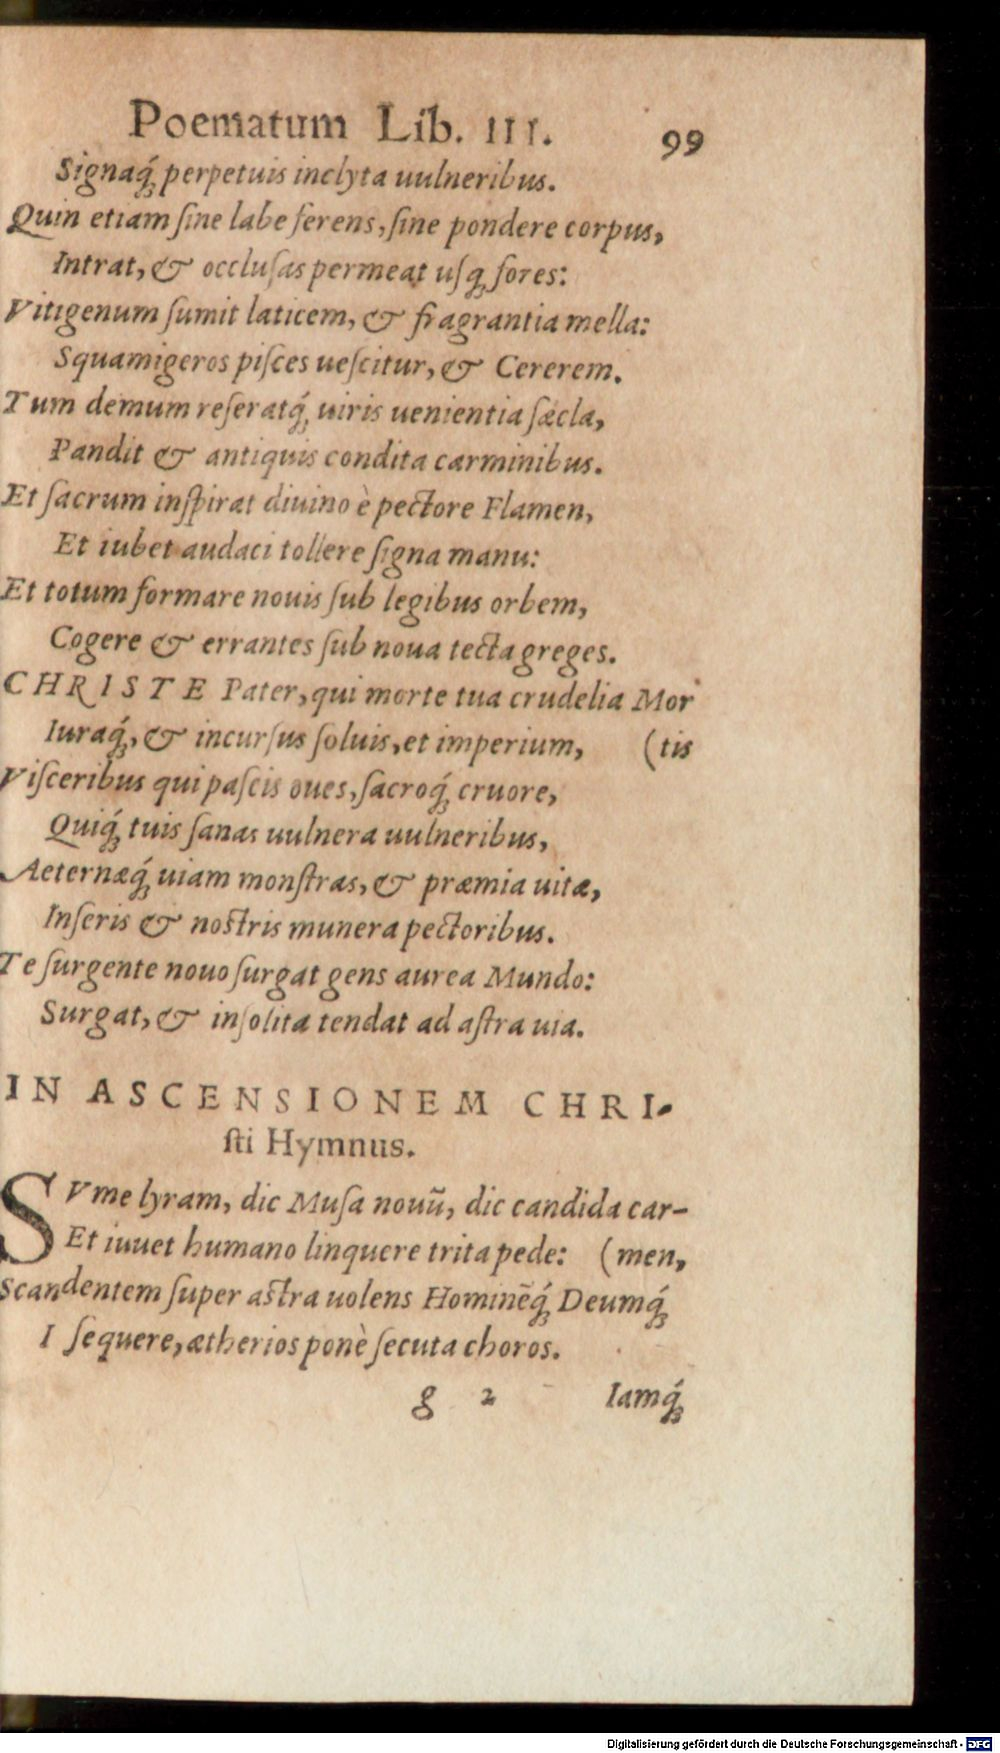 Poematum Lib. III. 99
Signaq́; perpetuis inclyta uulneribus.
Quin etiam ſine labe ferens, ſine pondere corpus,
Intrat, & occluſas permeat uſq; fores:
Vitigenum ſumit laticem, & fragrantia mella:
Squamigeros piſces ueſcitur, & Cererem.
Tum demum reſeratq́; uiris uenientia ſæcla,
Pandit & antiquis condita carminibus.
Et ſacrum inſpirat diuino è pectore Flamen,
Et iubet audaci tollere ſigna manu:
Et totum formare nouis ſub legibus orbem,
Cogere & errantes ſub noua tecta greges.
CHRISTE Pater, qui morte tua crudelia Mor
Iuraq́;, & incurſus ſoluis, et imperium, (tis
Viſceribus qui paſcis oues, ſacroq́; cruore,
Quiq́; tuis ſanas uulnera uulneribus,
Aeternæq́; uiam monſtras, & præmia uitæ,
Inſeris & noſtris munera pectoribus.
Te ſurgente nouo ſurgat gens aurea Mundo:
Surgat, & inſolita tendat ad aſtra uia.
IN ASCENSIONEM CHRI-
ſti Hymnus.
SVme lyram, dic Muſa nouū, dic candida car-
Et iuuet humano linquere trita pede: (men,
Scandentem ſuper aſtra uolens Hominēq́; Deumq́;
I ſequere, ætherios ponè ſecuta choros.
g 2 Iamq́;
Digitalisierung gefördert durch die Deutsche Forschungsgemeinschaft - DFG